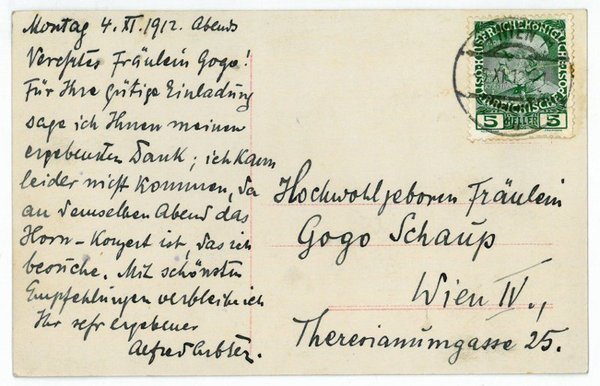 Montag 4. XI. 1912. Abends
Verehrtes Fräulein Gogo!
Für Ihre gütige Einladung
sage ich Ihnen meinen
ergebensten Dank; ich kann
leider nicht kommen, da
an demselben Abend das
Horn-Konzert ist, das ich
besuche. Mit schönsten
Empfehlungen verbleibe ich
Ihr sehr ergebener
Alfred
Hochwohlgeboren Fräulein
Gogo Schaup
Wien IV.,
Theresianumgasse 25.
WIEN
5 HELLER 5